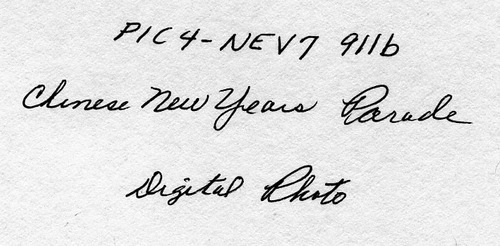 PIC4-NEV7 911b
Chinese New Years Parade
Digital Photo